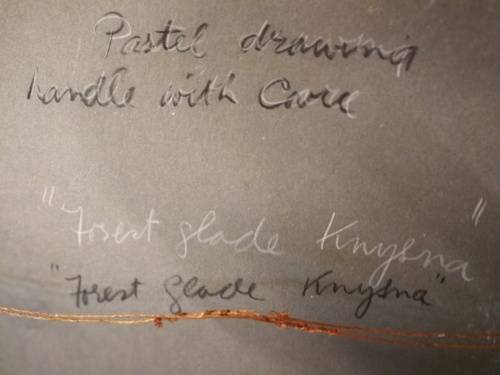 Pastel drawing
handle with Care
"Forest glade Knysna"
"Forest glade Knysna"